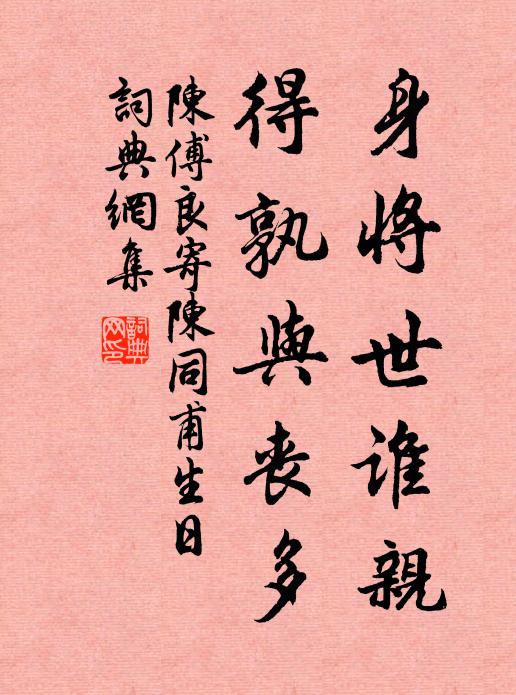 身將世誰親
得孰與喪多
陳傅良寄陳同甫生日
詞典網集
詞典網印